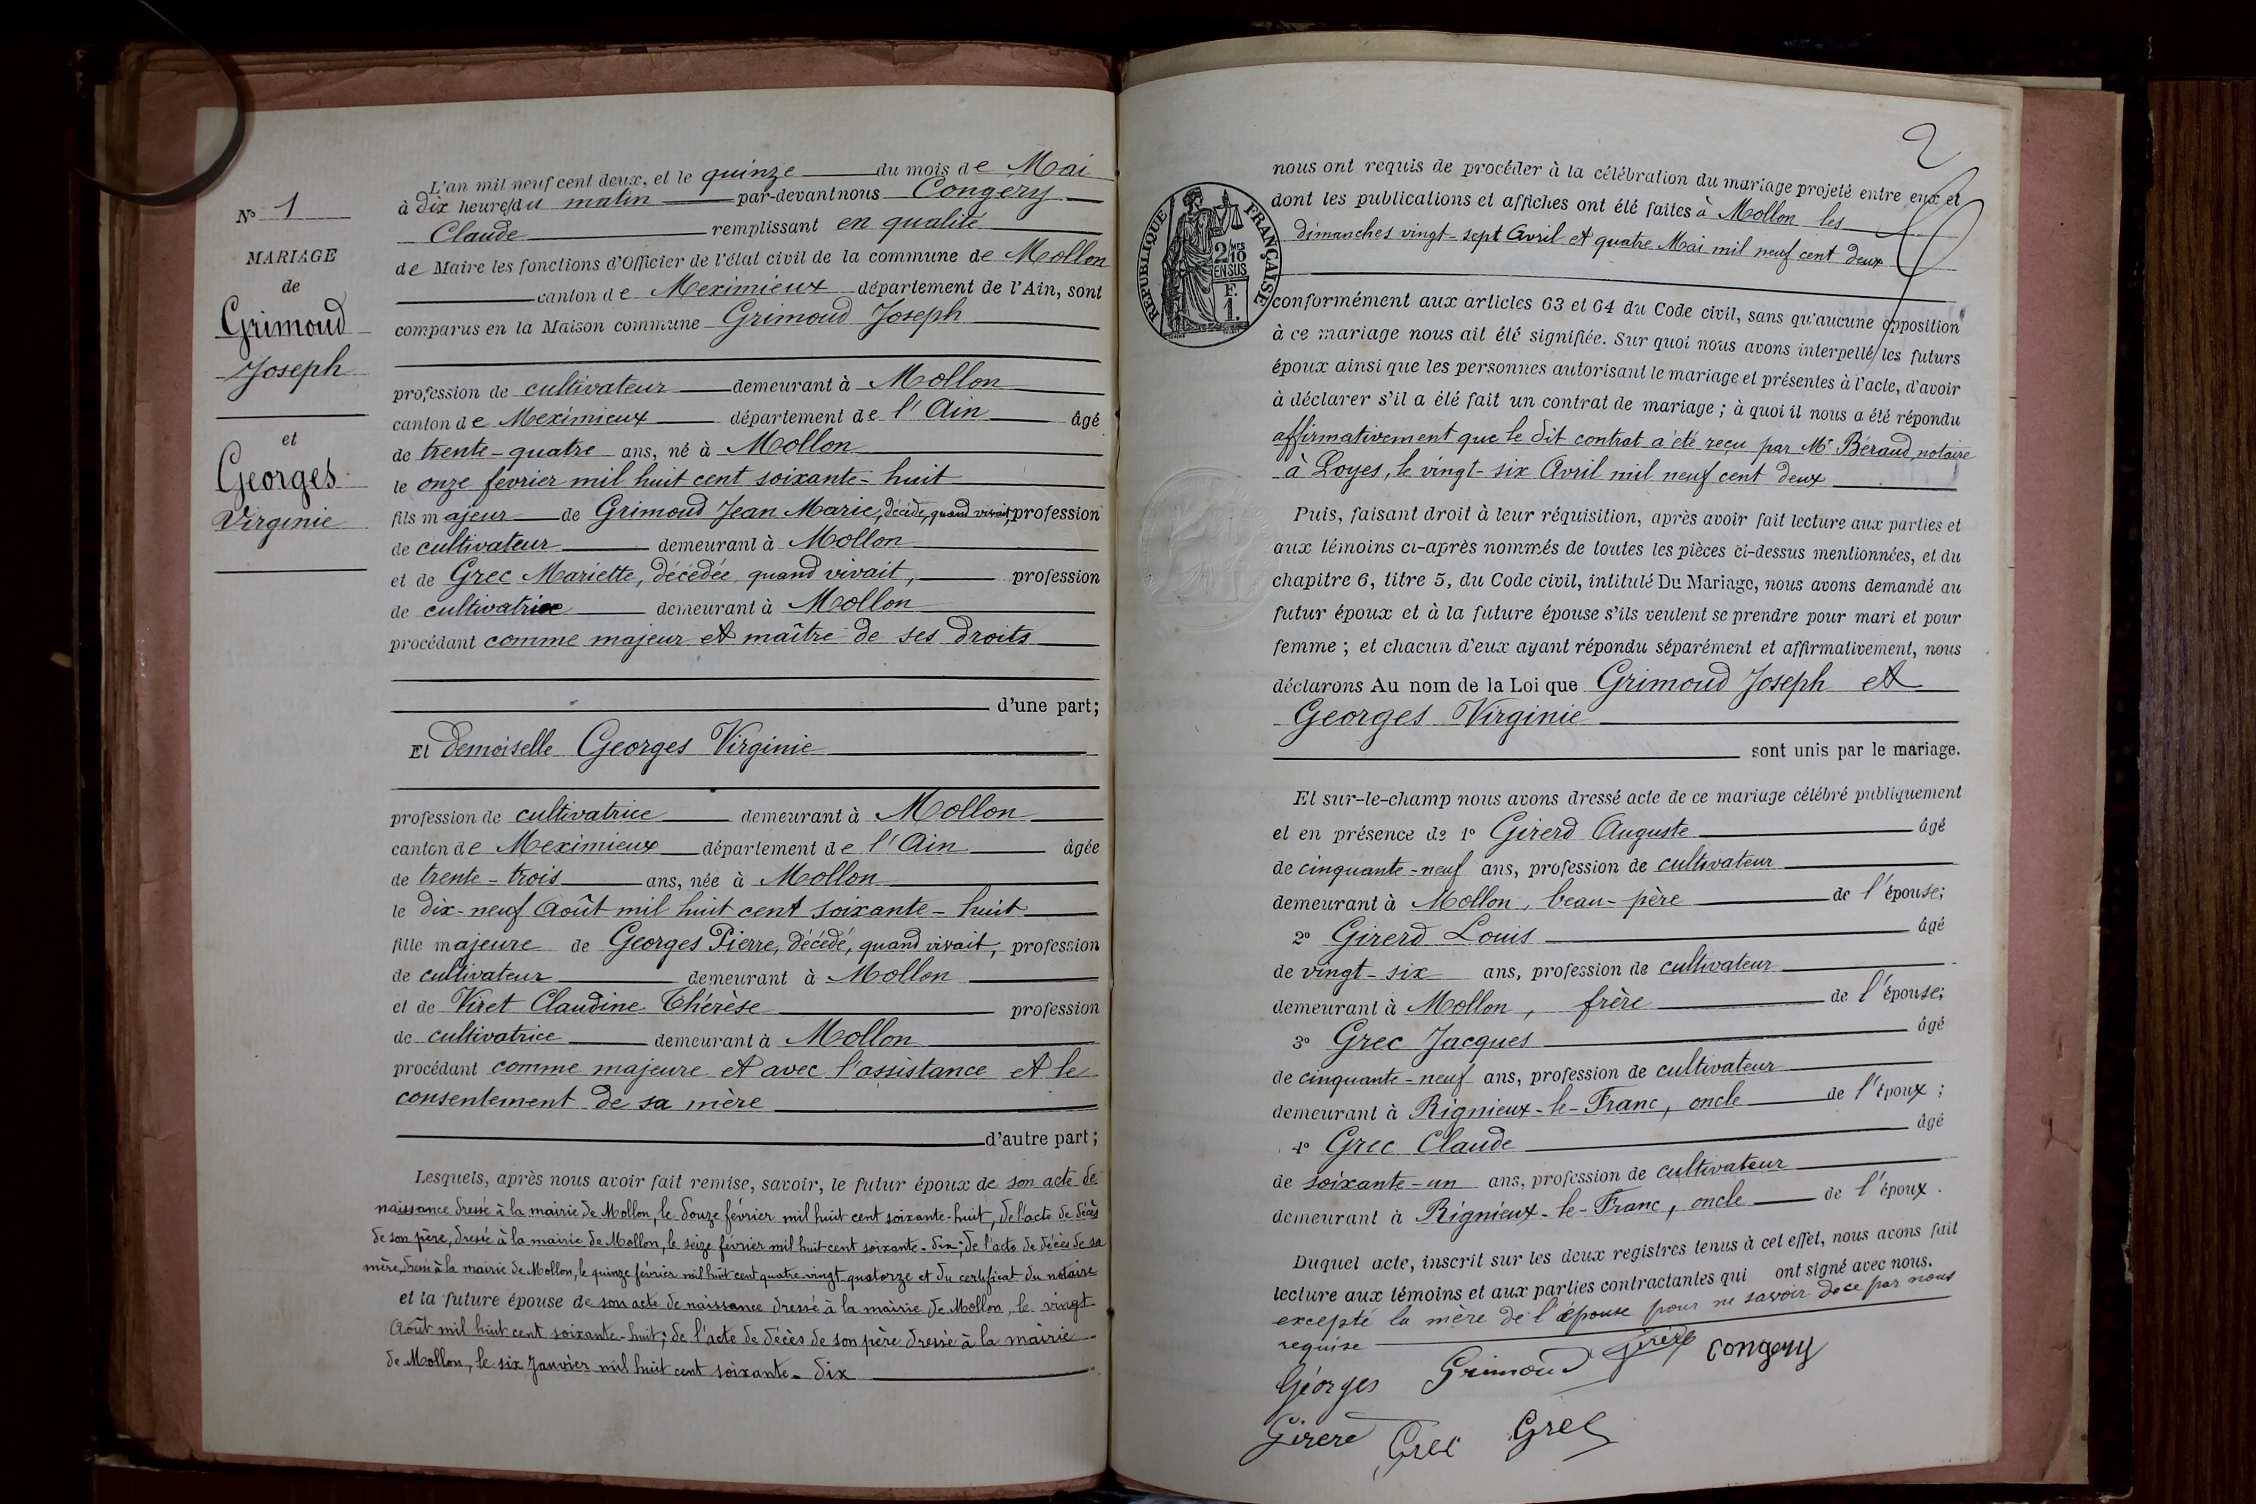 N° 1
MARIAGE
de
Grimoud
Joseph
et
Georges
Virginie
L'an mil neuf cent deux, et le quinze du mois de Mai
à dix heures du matin par-devant nous Congery
Claude remplissant en qualité
de Maire les fonctions d'Officier de l'état civil de la commune de Mollon
canton de Meximieux département de l'Ain, sont
comparus en la Maison commune Grimoud Joseph
profession de cultivateur demeurant à Mollon
canton de Meximieux département de l'Ain âgé
de trente-quatre ans, né à Mollon
le onze février mil huit cent soixante-huit
fils majeur de Grimoud Jean Marie, décédé, quand vivait, profession
de cultivateur demeurant à Mollon
et de Grec Mariette, décédée quand vivait, profession
de cultivatrice demeurant à Mollon
procédant comme majeur et maître de ses droits
d'une part;
Et demoiselle Georges Virginie
profession de cultivatrice demeurant à Mollon
canton de Meximieux département de l'Ain âgée
de trente-trois ans, née à Mollon
le dix-neuf Août mil huit cent soixante-huit
fille majeure de Georges Pierre, décédé, quand vivait, profession
de cultivateur demeurant à Mollon
et de Viret Claudine Thérèse profession
de cultivatrice demeurant à Mollon
procédant comme majeure et avec l'assistance et le
consentement de sa mère
d'autre part;
Lesquels, après nous avoir fait remise, savoir, le futur époux de son acte de
naissance dressé à la mairie de Mollon, le douze février mil huit cent soixante-huit, de l'acte de décès
de son père, dressé à la mairie de Mollon, le seize février mil huit cent soixante-dix; de l'acte de décès de sa
mère, dressé à la mairie de Mollon, le quinze février mil huit cent quatre-vingt-quatorze et du certificat du notaire
et la future épouse de son acte de naissance dressé à la mairie de Mollon, le vingt
Août mil huit cent soixante-huit; de l'acte de décès de son père dressé à la mairie
de Mollon, le six Janvier mil huit cent soixante-dix
2
RÉPUBLIQUE FRANÇAISE
2 MES
10
EN SUS
F.
1.
nous ont requis de procéder à la célébration du mariage projeté entre eux et
dont les publications et affiches ont été faites à Mollon les
dimanches vingt-sept Avril et quatre Mai mil neuf cent deux
conformément aux articles 63 et 64 du Code civil, sans qu'aucune opposition
à ce mariage nous ait été signifiée. Sur quoi nous avons interpellé les futurs
époux ainsi que les personnes autorisant le mariage et présentes à l'acte, d'avoir
à déclarer s'il a été fait un contrat de mariage; à quoi il nous a été répondu
affirmativement que le dit contrat a été reçu par Me Béraud, notaire
à Loyes, le vingt-six Avril mil neuf cent deux
Puis, faisant droit à leur réquisition, après avoir fait lecture aux parties et
aux témoins ci-après nommés de toutes les pièces ci-dessus mentionnées, et du
chapitre 6, titre 5, du Code civil, intitulé Du Mariage, nous avons demandé au
futur époux et à la future épouse s'ils veulent se prendre pour mari et pour
femme; et chacun d'eux ayant répondu séparément et affirmativement, nous
déclarons Au nom de la Loi que Grimoud Joseph et
Georges Virginie
sont unis par le mariage.
Et sur-le-champ nous avons dressé acte de ce mariage célébré publiquement
et en présence de 1° Girerd Auguste âgé
de cinquante-neuf ans, profession de cultivateur
demeurant à Mollon, beau-père de l'épouse;
2° Girerd Louis âgé
de vingt-six ans, profession de cultivateur
demeurant à Mollon, frère de l'épouse;
3° Grec Jacques âgé
de cinquante-neuf ans, profession de cultivateur
demeurant à Rignieux-le-Franc, oncle de l'époux;
4° Grec Claude âgé
de soixante-un ans, profession de cultivateur
demeurant à Rignieux-le-Franc, oncle de l'époux.
Duquel acte, inscrit sur les deux registres tenus à cet effet, nous avons fait
lecture aux témoins et aux parties contractantes qui ont signé avec nous.
excepté la mère de l'épouse pour ne savoir de ce par nous
requise
Géorges Grimoud Congery
Girerd Grec Grec